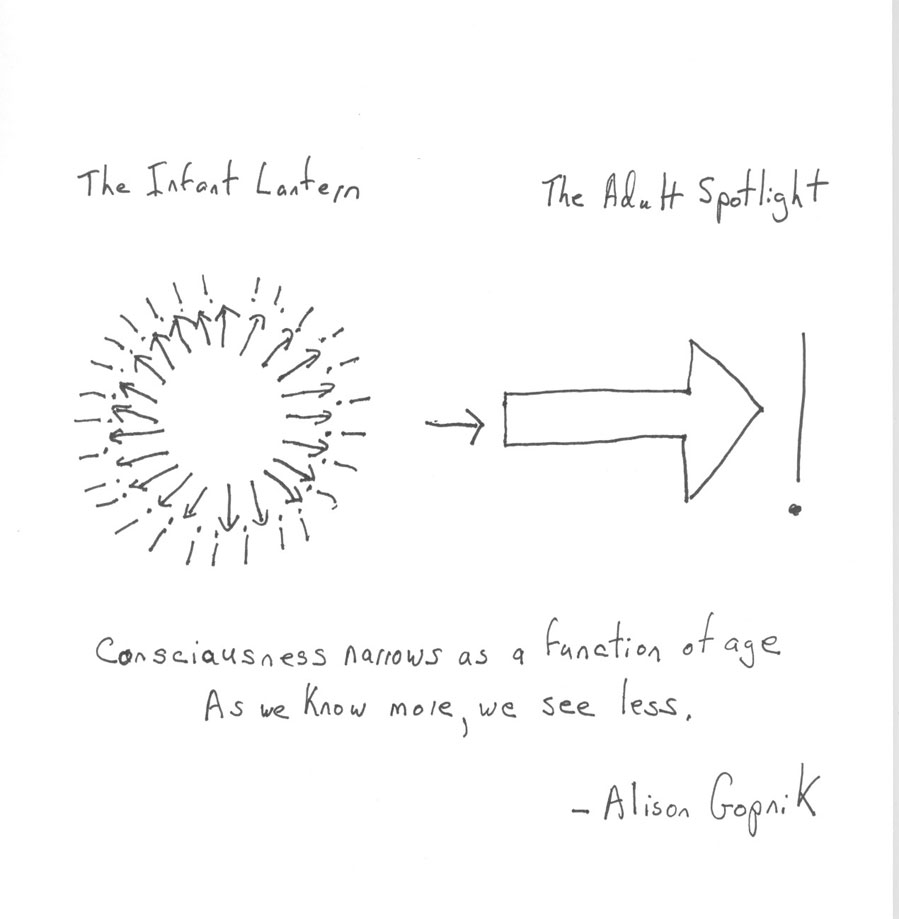 The Infant Lantern
The Adult Spotlight
Consciausness narrows as a function of age
As we know more, we see less.
- Alison Gopnik